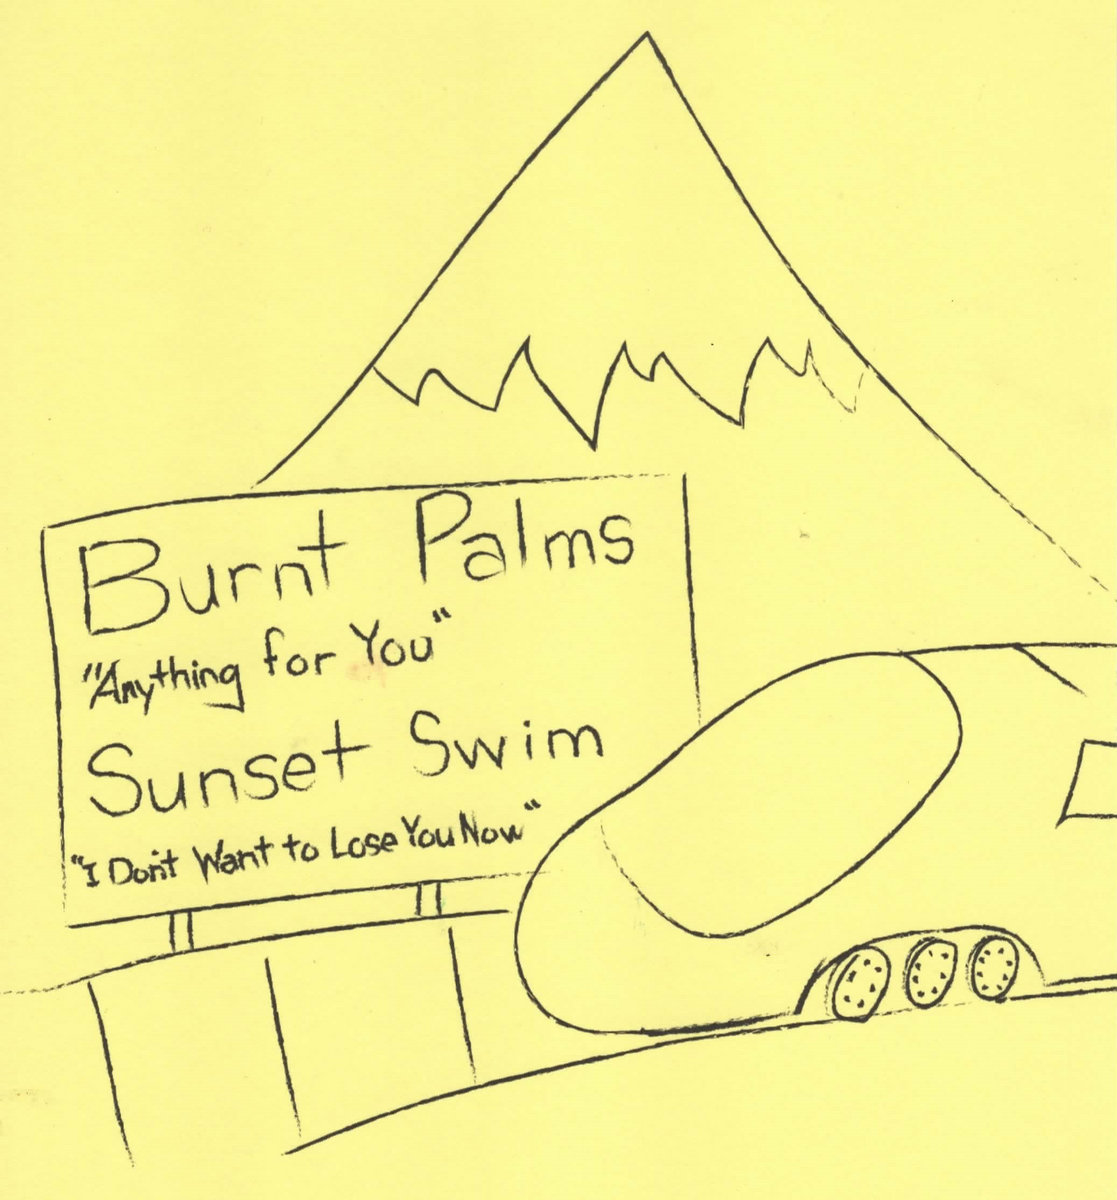 Burnt Palms
"Anything for You"
Sunset Swim
"I Don't Want to Lose You Now"